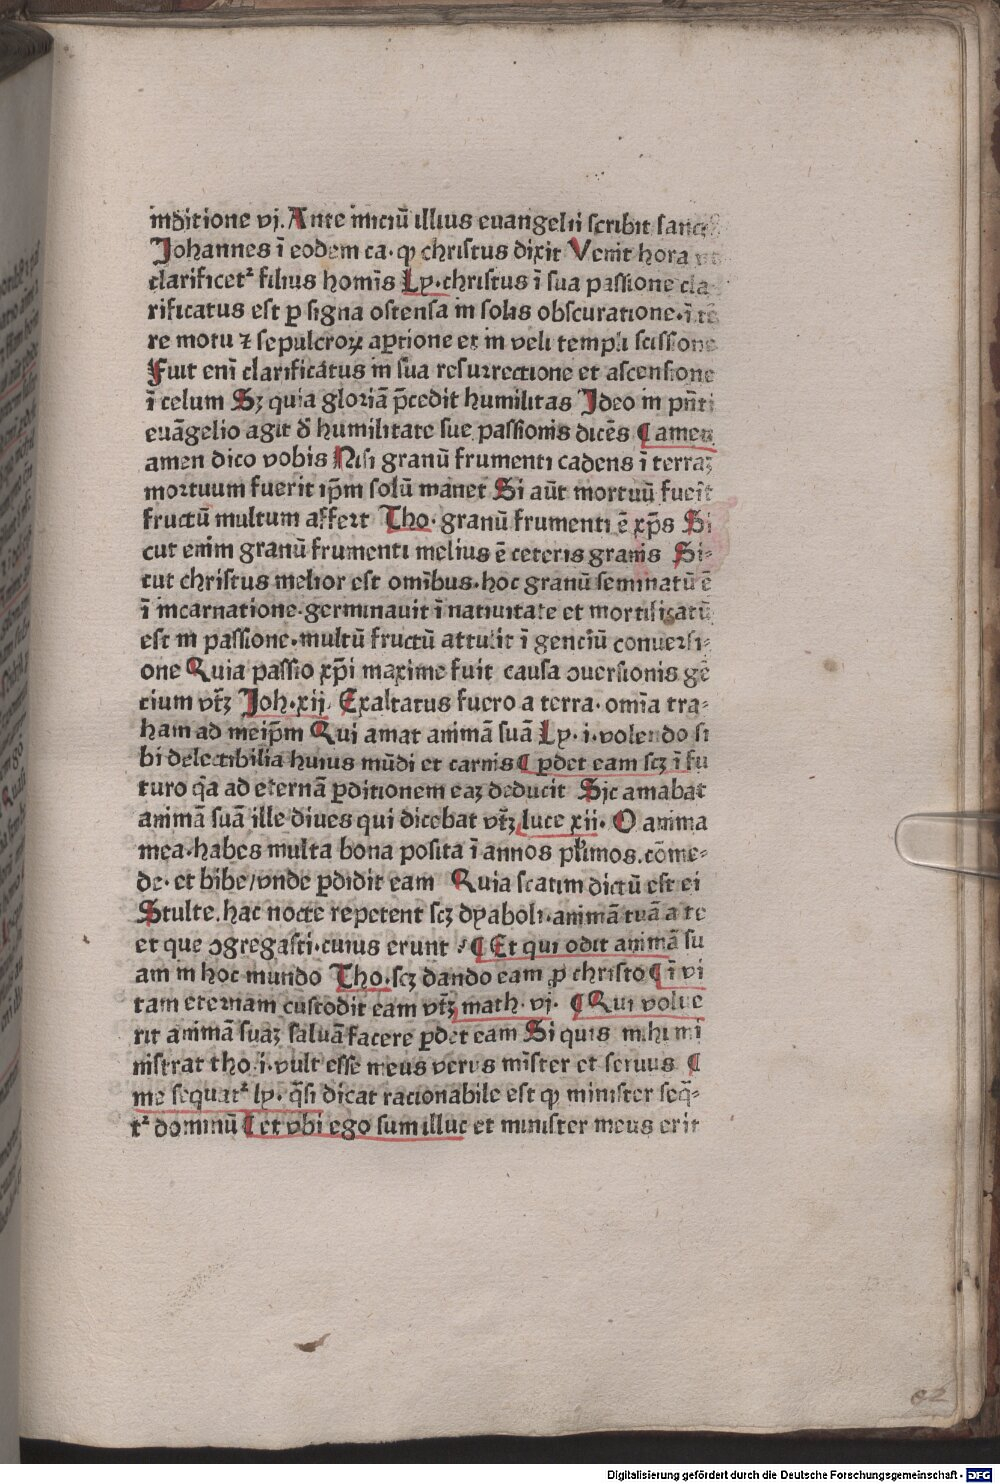 inditione vj. Ante iniciū illius euangelii scribit sanct
Johannes ī eodem ca. ꝙ christus dixit Venit hora vt
clarificetᷣ filius homīs Ly. christus ī sua passione cla
rificatus est ꝑ signa ostensa in solis obscuratione. ī te
re motu ⁊ sepulcroꝝ aꝑtione et in veli templi scissione
Fuit enī clarificatus in sua resurrectione et ascensione
ī celum Sꝫ quia gloriā p̄cedit humilitas Jdeo in pn̄ti
euāgelio agit d̄ humilitate sue passionis dicēs ¶ amen
amen dico vobis Nisi granū frumenti cadens ī terraꝫ
mortuum fuerit ip̄m solū manet Si aūt mortuū fuerit
fructū multum affert Tho. granū frumenti ē xp̄s Si
cut enim granū frumenti melius ē ceteris granis Si⸗
cut christus melior est omībus. hoc granū seminatū ē
ī incarnatione. germinauit ī natiuitate et mortificatū
est in passione. multū fructū attulit ī genciū conuersi⸗
one Quia passio xp̄i maxime fuit causa ↄuersionis gē
tium vt̄ꝫ Joh. xij. Exaltatus fuero a terra. omīa tra⸗
ham ad meip̄m Qui amat animā suā Ly. i. volendo si
bi delectibilia huius mūdi et carnis ¶ ꝑdet eam scꝫ ī fu
turo q̄a ad eternā ꝑditionem eaꝫ deducit Sic amabat
animā suā ille diues qui dicebat vt̄ꝫ luce xij. O anima
mea. habes multa bona posita ī annos plʳimos. cōme⸗
de. et bibe/ vnde ꝑdidit eam Quia statim dictū est ei
Stulte. hac nocte repetent scꝫ dyaboli. animā tuā a te
et que ↄgregasti. cuius erunt ¶ Et qui odit animā su
am in hoc mundo Tho. scꝫ dando eam ꝓ christo ¶ ī vi
tam eternam custodit eam vt̄ꝫ math. vj. ¶ Qui volue
rit animā suaꝫ saluā facere ꝑdet eam Si quis mihi mi
nistrat tho. i. vult esse meus verus mīster et seruus ¶
me sequatᷣ ly. q̄si dicat racionabile est ꝙ minister seq̄⸗
tᷣ dominū ¶ et vbi ego sum illuc et minister meus erit
62
Digitalisierung gefördert durch die Deutsche Forschungsgemeinschaft - DFG